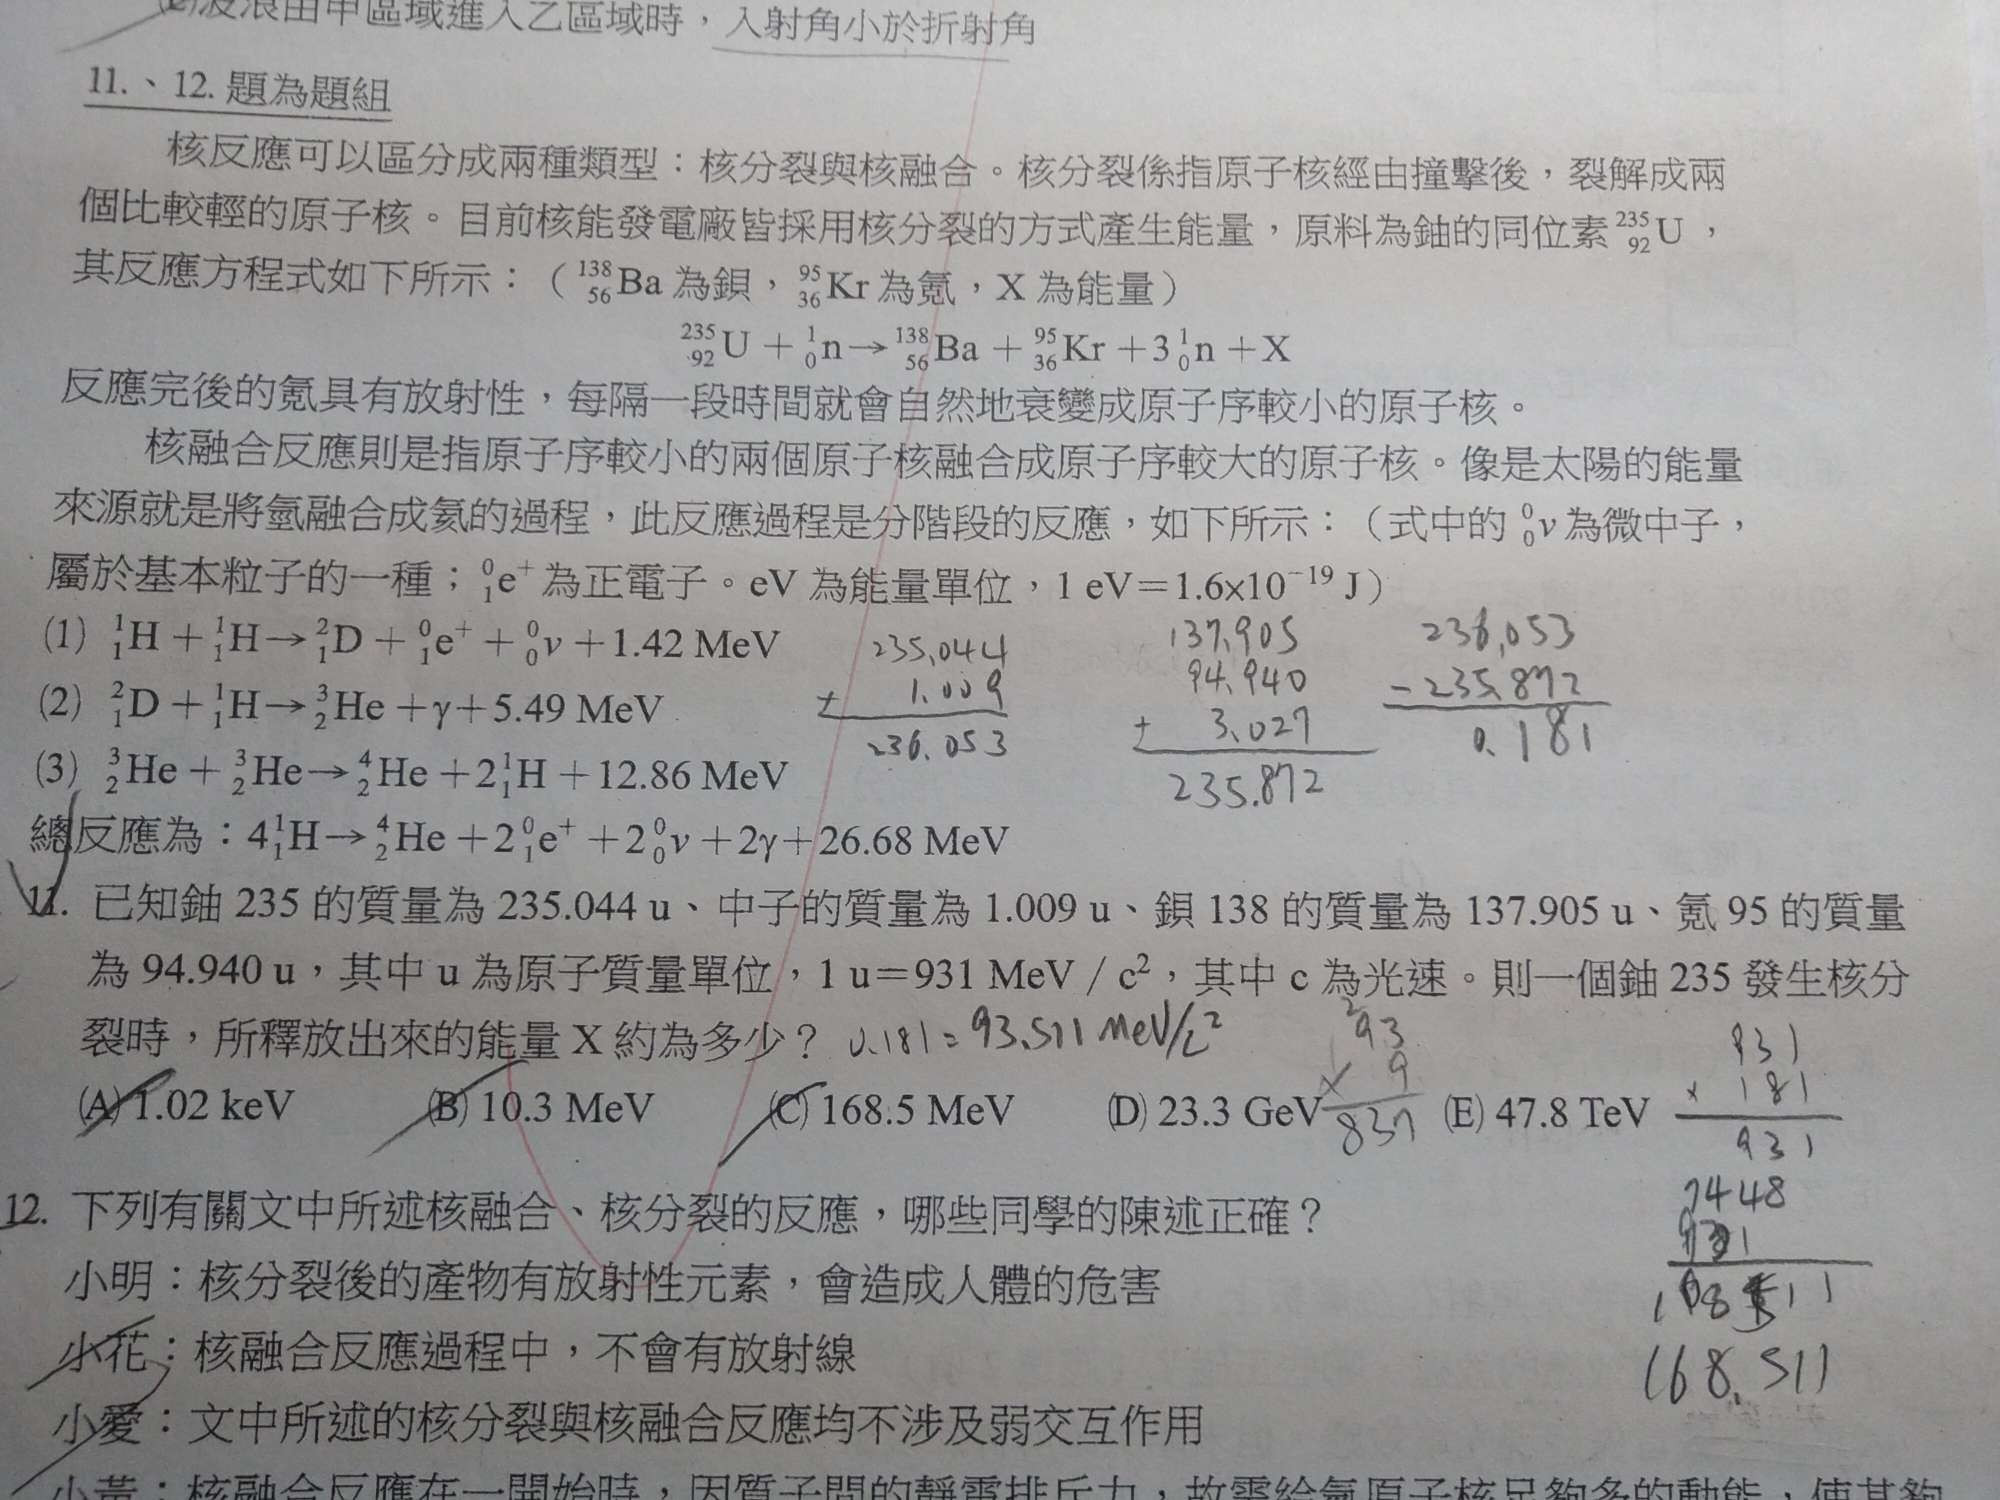 波浪由甲區域進入乙區域時，入射角小於折射角
11.、12. 題為題組
核反應可以區分成兩種類型：核分裂與核融合。核分裂係指原子核經由撞擊後，裂解成兩
個比較輕的原子核。目前核能發電廠皆採用核分裂的方式產生能量，原料為鈾的同位素 ²³⁵₉₂U，
其反應方程式如下所示：（¹³⁸₅₆Ba 為鋇，⁹⁵₃₆Kr 為氪，X 為能量）
²³⁵₉₂U + ¹₀n → ¹³⁸₅₆Ba + ⁹⁵₃₆Kr + 3¹₀n + X
反應完後的氪具有放射性，每隔一段時間就會自然地衰變成原子序較小的原子核。
核融合反應則是指原子序較小的兩個原子核融合成原子序較大的原子核。像是太陽的能量
來源就是將氫融合成氦的過程，此反應過程是分階段的反應，如下所示：（式中的 ⁰₀ν 為微中子，
屬於基本粒子的一種；⁰₁e⁺ 為正電子。eV 為能量單位，1 eV＝1.6×10⁻¹⁹ J）
(1) ¹₁H + ¹₁H → ²₁D + ⁰₁e⁺ + ⁰₀ν + 1.42 MeV
(2) ²₁D + ¹₁H → ³₂He + γ + 5.49 MeV
(3) ³₂He + ³₂He → ⁴₂He + 2¹₁H + 12.86 MeV
總反應為：4¹₁H → ⁴₂He + 2⁰₁e⁺ + 2⁰₀ν + 2γ + 26.68 MeV
235.044
+ 1.009
236.053
137.905
94.940
+ 3.027
235.872
236.053
- 235.872
0.181
11. 已知鈾 235 的質量為 235.044 u、中子的質量為 1.009 u、鋇 138 的質量為 137.905 u、氪 95 的質量
為 94.940 u，其中 u 為原子質量單位，1 u＝931 MeV / c²，其中 c 為光速。則一個鈾 235 發生核分
裂時，所釋放出來的能量 X 約為多少？ 0.181 = 93.511 MeV/c²
(A) 1.02 keV (B) 10.3 MeV (C) 168.5 MeV (D) 23.3 GeV (E) 47.8 TeV
93
× 9
837
931
× 181
931
7448
931
168.511
12. 下列有關文中所述核融合、核分裂的反應，哪些同學的陳述正確？
小明：核分裂後的產物有放射性元素，會造成人體的危害
小花：核融合反應過程中，不會有放射線
小愛：文中所述的核分裂與核融合反應均不涉及弱交互作用
小黃：核融合反應在一開始時，因質子間的靜電排斥力，故需給氫原子核足夠多的動能，使其夠